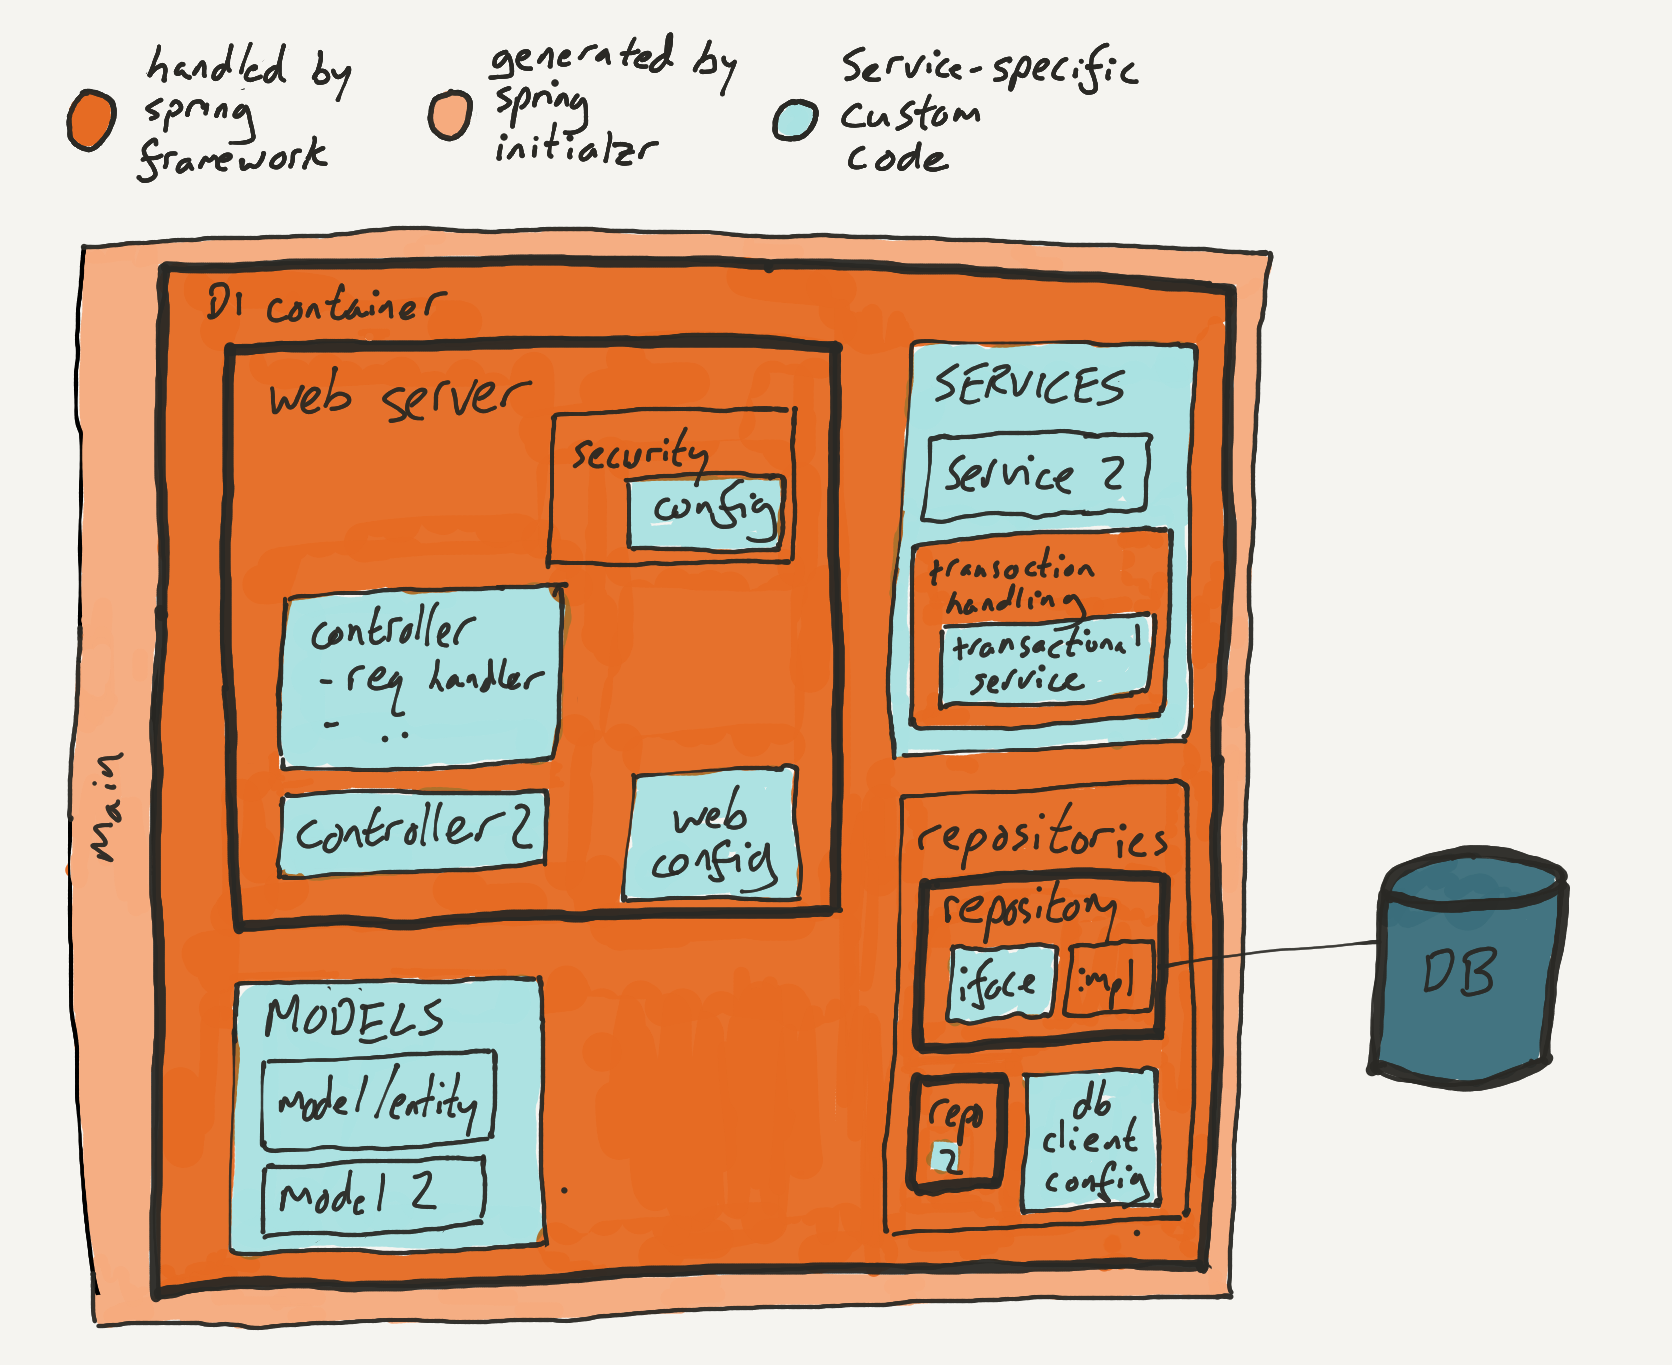 handled by
spring
framework
generated by
spring
initialzr
Service-specific
custom
code
Main
DI container
web server
security
config
controller
- req handler
- ..
controller 2
web
config
MODELS
model/entity
model 2
SERVICES
Service 2
transaction
handling
transactional
service
repositories
repository
iface
impl
repo
2
db
client
config
DB